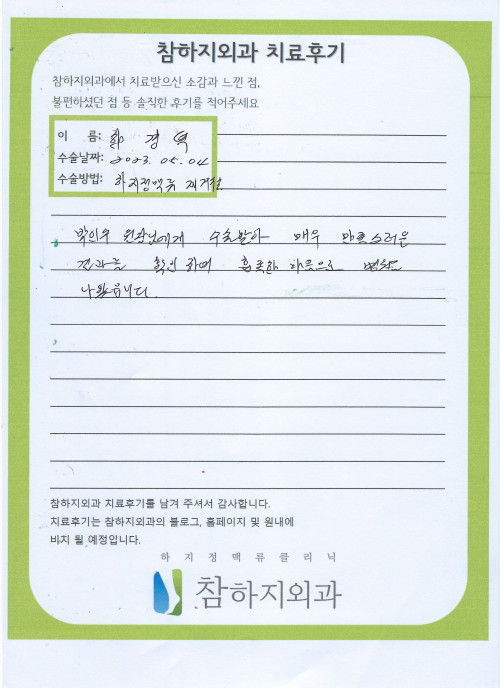 참하지외과 치료후기
참하지외과에서 치료받으신 소감과 느낀 점,
불편하셨던 점 등 솔직한 후기를 적어주세요
이 름: 경
수술날짜: 2023. 05. 04
수술방법: 하지정맥류 제거술
원장님에게 수술받아 매우 만족스러운
결과를 확인 하며 흡족한 마음으로 병원
나왔읍니다.
참하지외과 치료후기를 남겨 주셔서 감사합니다.
치료후기는 참하지외과의 블로그, 홈페이지 및 원내에
비치 될 예정입니다.
하지정맥류클리닉
참하지외과